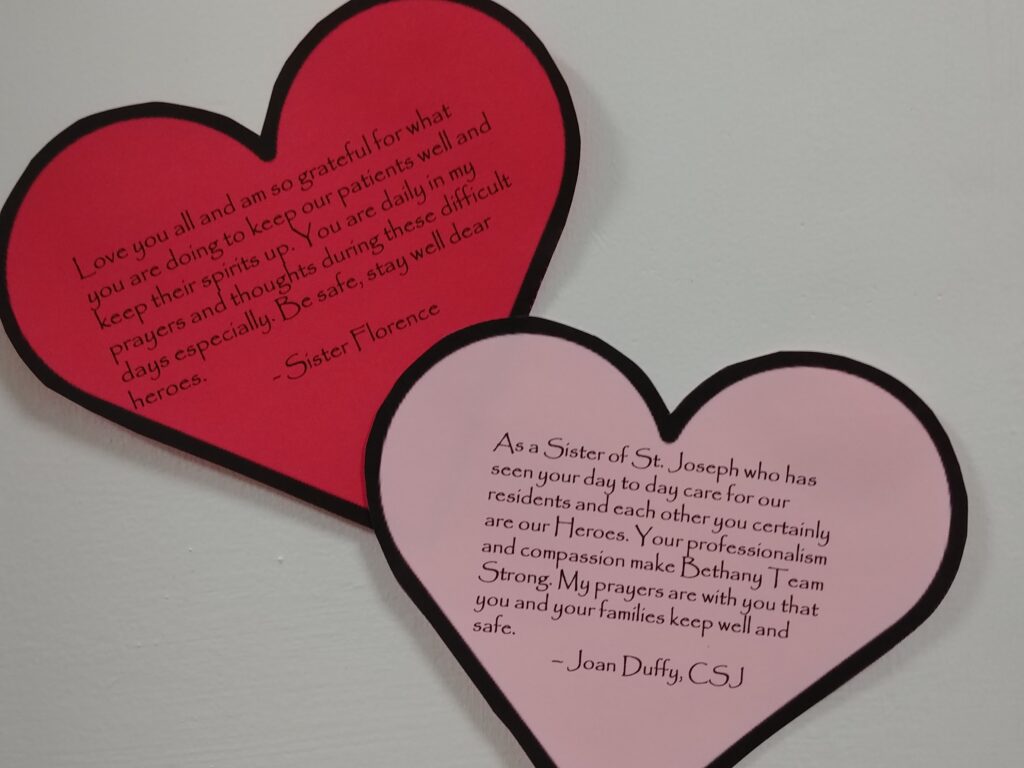 Love you all and am so grateful for what
you are doing to keep our patients well and
keep their spirits up. You are daily in my
prayers and thoughts during these difficult
days especially. Be safe, stay well dear
heroes.
- Sister Florence
As a Sister of St. Joseph who has
seen your day to day care for our
residents and each other you certainly
are our Heroes. Your professionalism
and compassion make Bethany Team
Strong. My prayers are with you that
you and your families keep well and
safe.
– Joan Duffy, CSJ